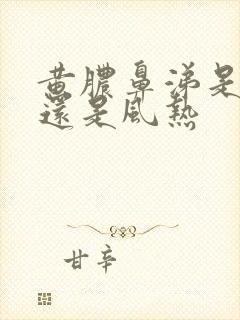 黄膿鼻涕是
還是風熱
甘辛